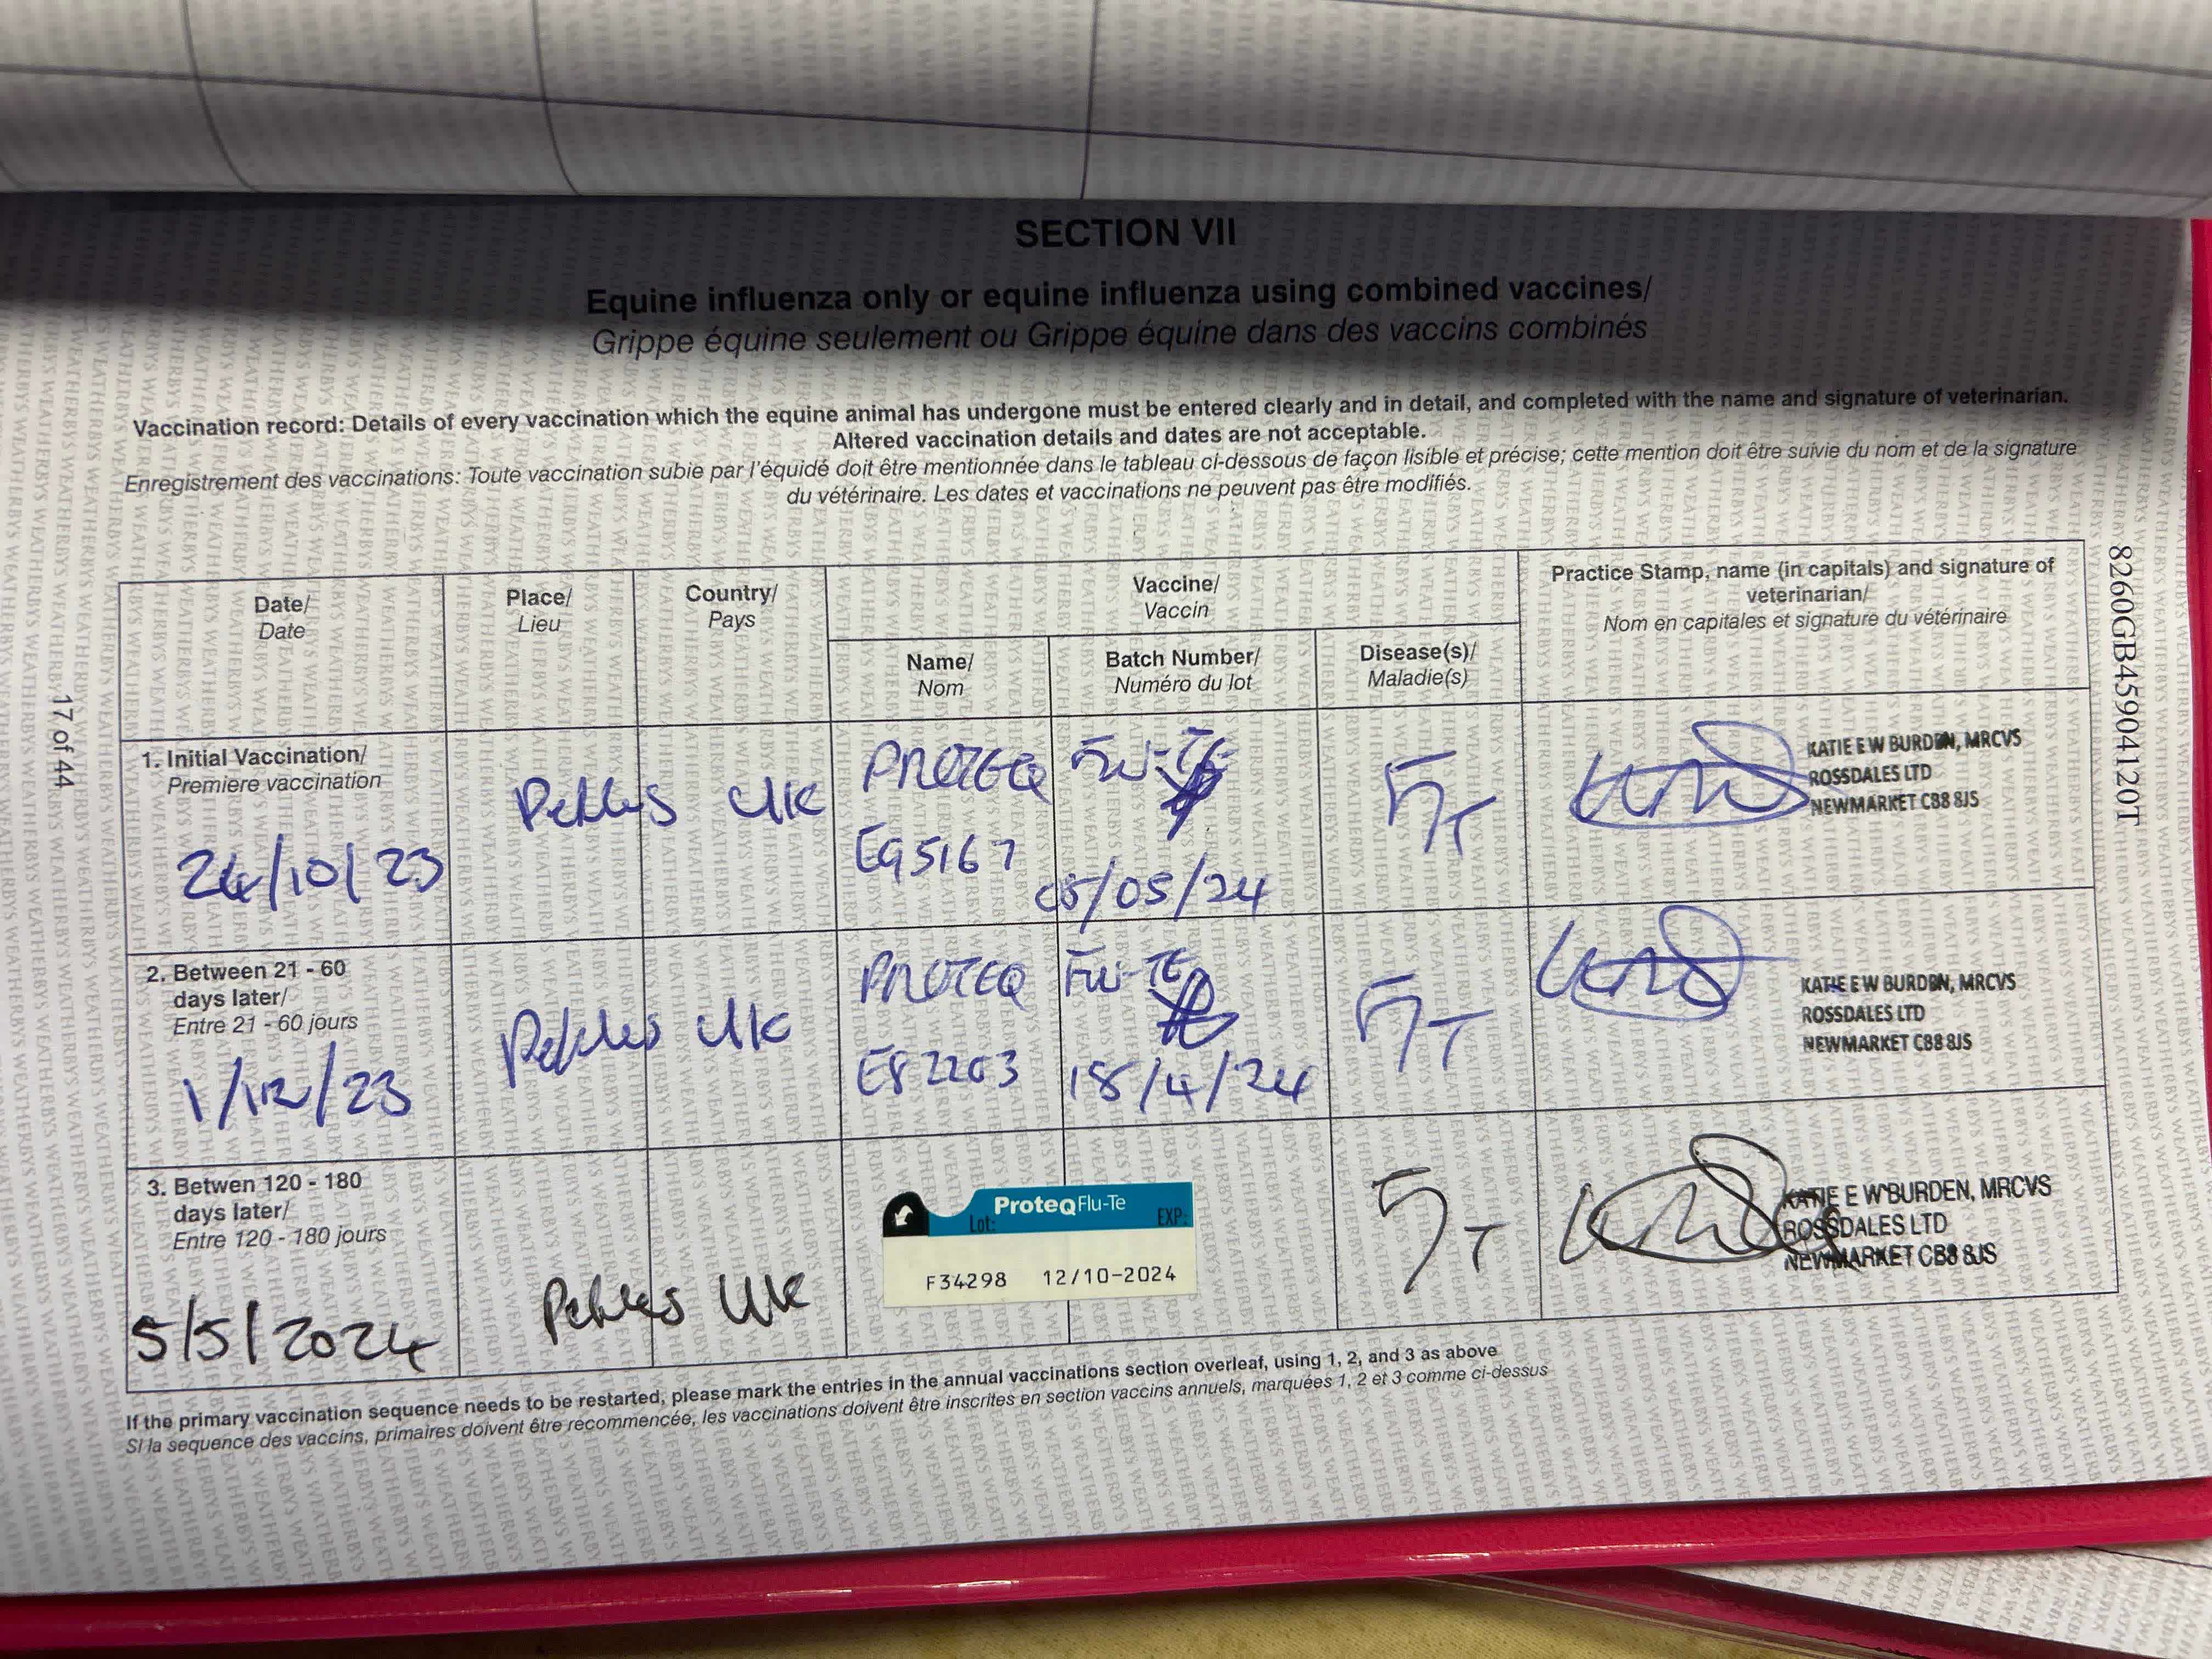 SECTION VII
Equine influenza only or equine influenza using combined vaccines/
Grippe équine seulement ou Grippe équine dans des vaccins combinés
Vaccination record: Details of every vaccination which the equine animal has undergone must be entered clearly and in detail, and completed with the name and signature of veterinarian.
Altered vaccination details and dates are not acceptable.
Enregistrement des vaccinations: Toute vaccination subie par l'équidé doit être mentionnée dans le tableau ci-dessous de façon lisible et précise; cette mention doit être suivie du nom et de la signature
du vétérinaire. Les dates et vaccinations ne peuvent pas être modifiés.
Date/
Date
Place/
Lieu
Country/
Pays
Vaccine/
Vaccin
Name/
Nom
Batch Number/
Numéro du lot
Disease(s)/
Maladie(s)
Practice Stamp, name (in capitals) and signature of
veterinarian/
Nom en capitales et signature du vétérinaire
1. Initial Vaccination/
Premiere vaccination
24/10/23
UK
PROTEQ
E95167
FLU-TE
05/05/24
F/T
KATIE E W BURDEN, MRCVS
ROSSDALES LTD
NEWMARKET CB8 8JS
2. Between 21 - 60
days later/
Entre 21 - 60 jours
1/12/23
UK
PROTEQ
E82203
FLU-TE
18/4/24
F/T
KATIE E W BURDEN, MRCVS
ROSSDALES LTD
NEWMARKET CB8 8JS
3. Betwen 120 - 180
days later/
Entre 120 - 180 jours
5/5/2024
UK
ProteqFlu-Te
Lot: EXP:
F34298 12/10-2024
F/T
KATIE E W BURDEN, MRCVS
ROSSDALES LTD
NEWMARKET CB8 8JS
If the primary vaccination sequence needs to be restarted, please mark the entries in the annual vaccinations section overleaf, using 1, 2, and 3 as above
Si la sequence des vaccins, primaires doivent être recommencée, les vaccinations doivent être inscrites en section vaccins annuels, marquées 1, 2 et 3 comme ci-dessus
17 of 44
8260GB45904120T
WEATHERBYS